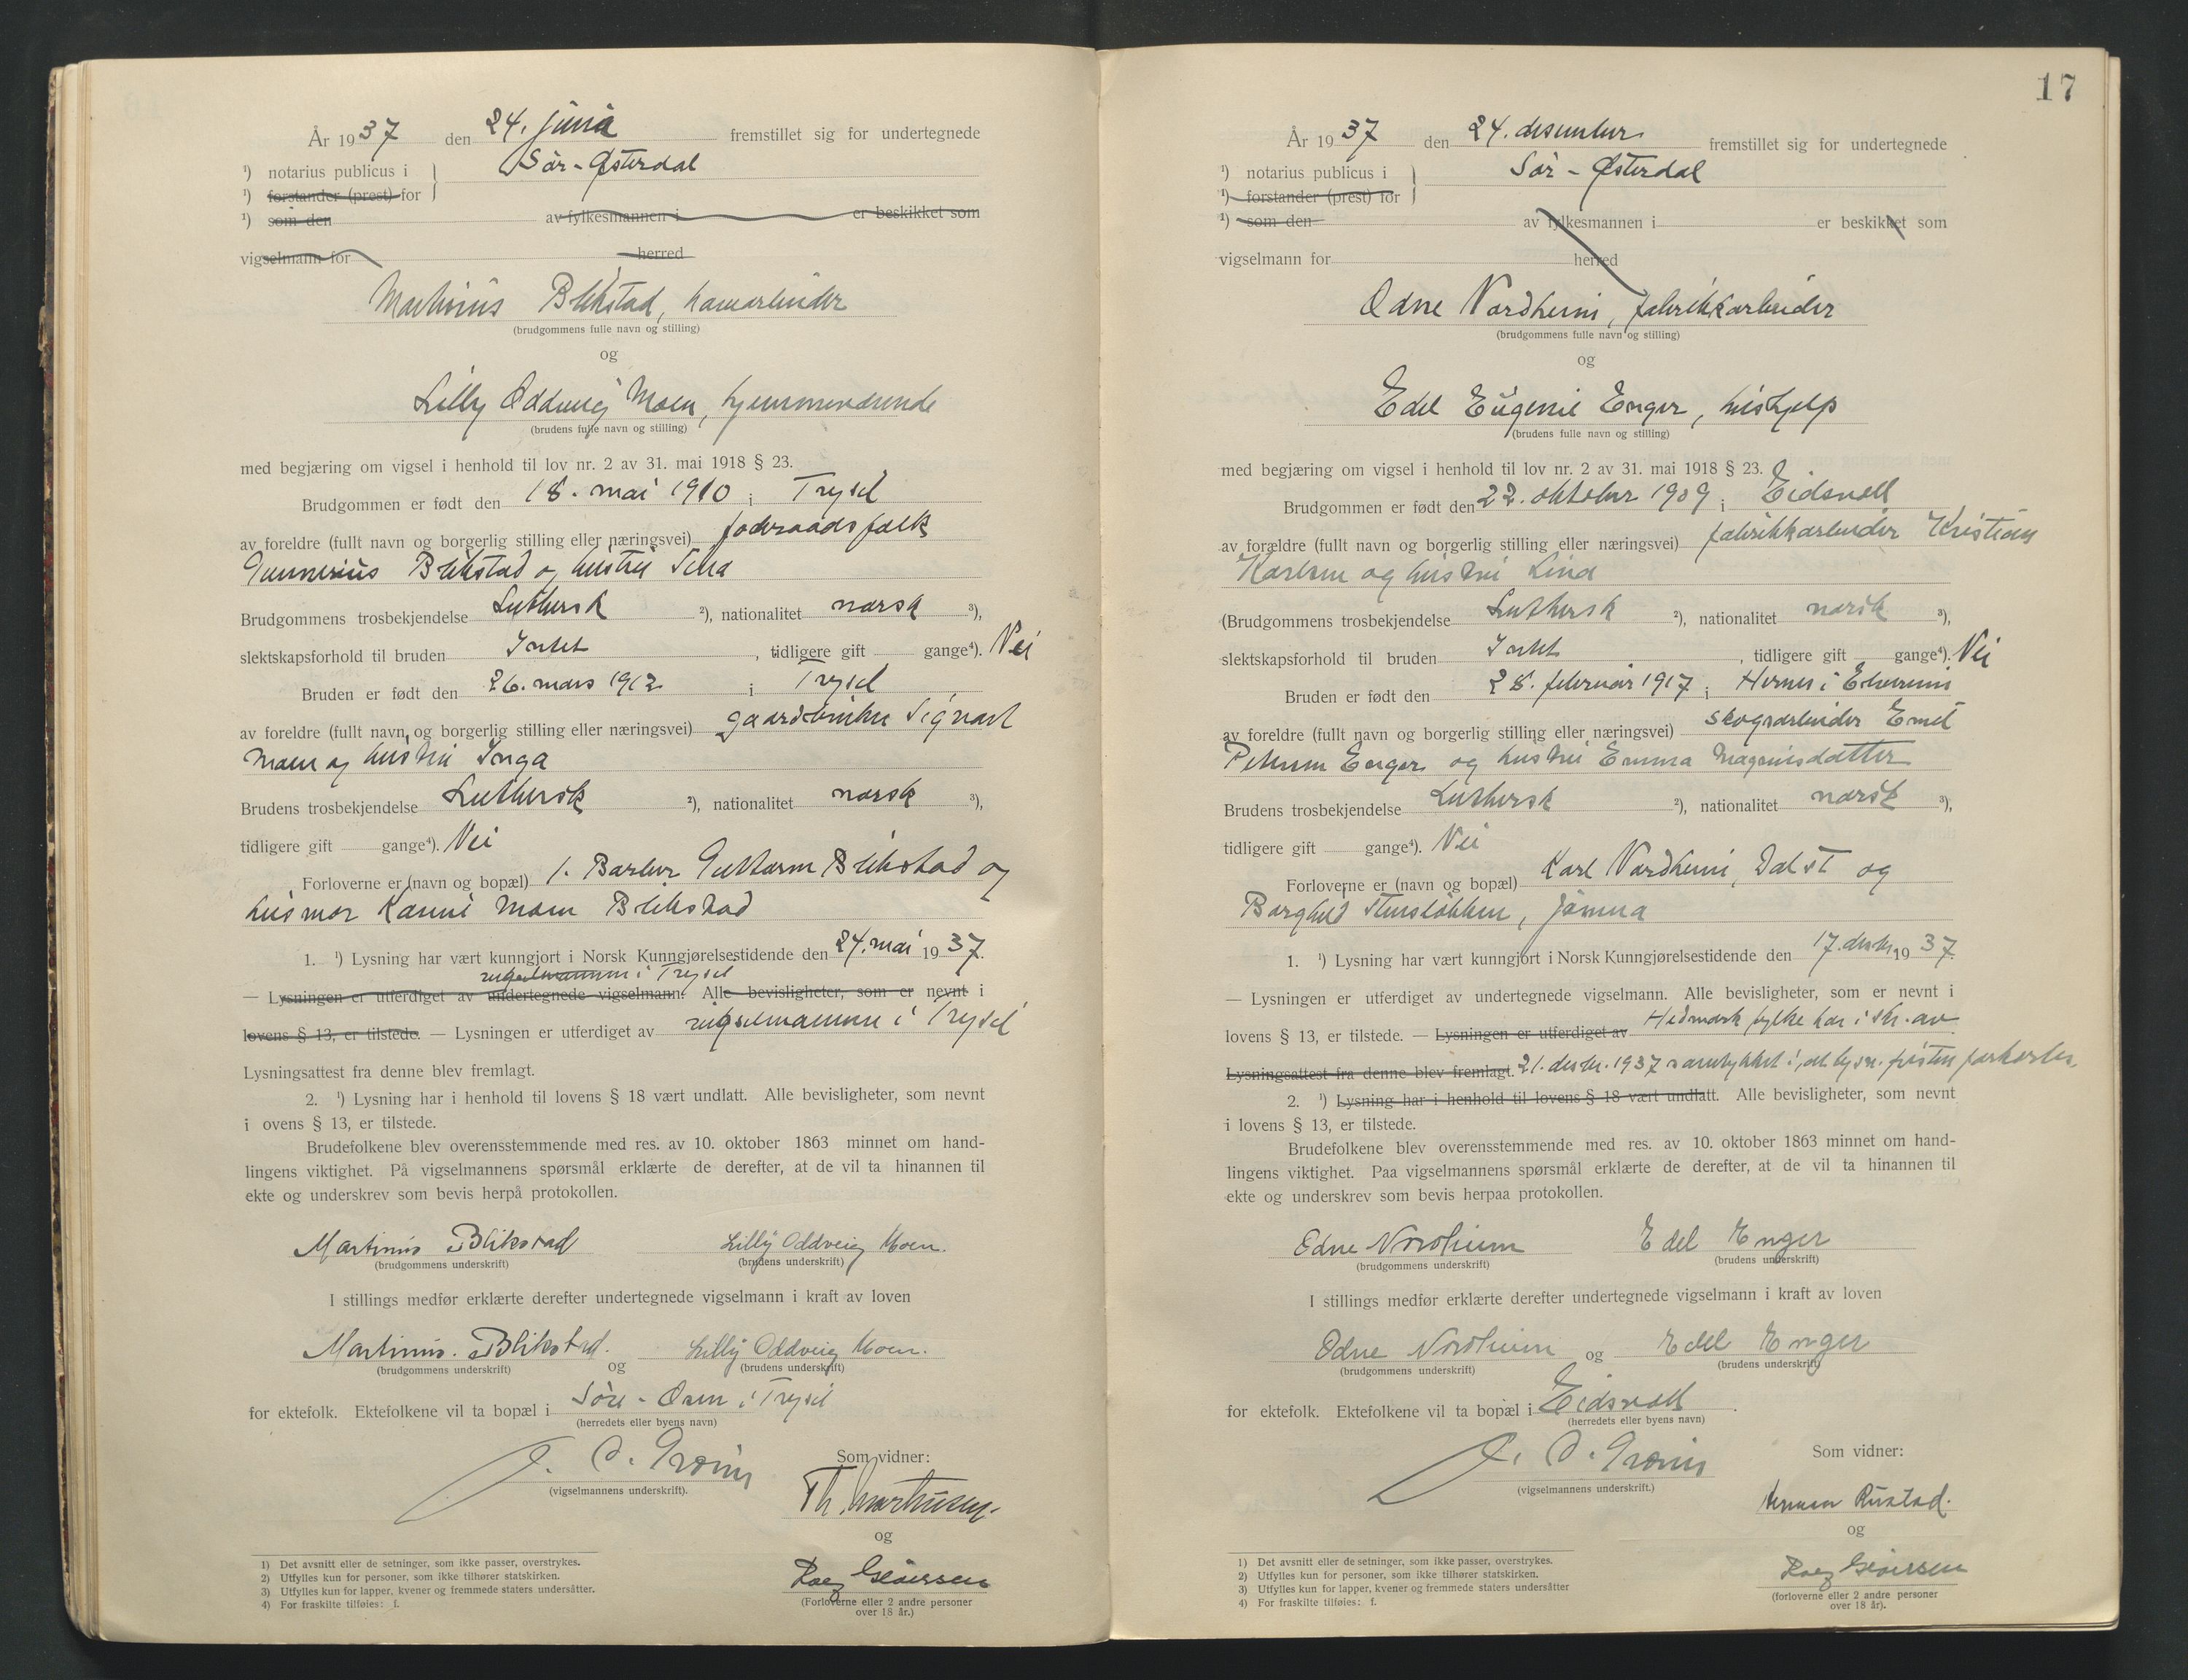 År 1937 den 24. juni fremstillet sig for undertegnede
¹) notarius publicus i } Sör-Østerdal
¹) forstander (prest) for
¹) som den av fylkesmannen i er beskikket som
vigselmann for herred
Martinius Blikstad,
(brudgommens fulle navn og stilling)
og
Lilly Oddveig Moen, hjemmeværende
(brudens fulle navn og stilling)
med begjæring om vigsel i henhold til lov nr. 2 av 31. mai 1918 § 23.
Brudgommen er født den 18. mai 1910 i Trysil
av foreldre (fullt navn og borgerlig stilling eller næringsvei) foderaadsfolk
Gunnerius Blikstad og hustru
Brudgommens trosbekjendelse Luthersk ²), nationalitet norsk ³),
slektskapsforhold til bruden Intet, tidligere gift gange⁴). Nei
Bruden er født den 26. mars 1912 i Trysil
av foreldre (fullt navn og borgerlig stilling eller næringsvei) gaardbruker Sigvart
Moen og hustru Inga
Brudens trosbekjendelse Luthersk ²), nationalitet norsk ³),
tidligere gift gange⁴). Nei
Forloverne er (navn og bopæl) 1. Barber Guttorm Blikstad og
husmor Moen Blikstad
1. ¹) Lysning har vært kunngjort i Norsk Kunngjørelsestidende den 24. mai 1937.
vigselmannen i Trysil
— Lysningen er utferdiget av undertegnede vigselmann. Alle bevisligheter, som er nevnt i
lovens § 13, er tilstede. — Lysningen er utferdiget av vigselmannen i Trysil
Lysningsattest fra denne blev fremlagt.
2. ¹) Lysning har i henhold til lovens § 18 vært undlatt. Alle bevisligheter, som nevnt
i ovens § 13, er tilstede.
Brudefolkene blev overensstemmende med res. av 10. oktober 1863 minnet om hand-
lingens viktighet. På vigselmannens spørsmål erklærte de derefter, at de vil ta hinannen til
ekte og underskrev som bevis herpå protokollen.
Martinus Blikstad Lilly Oddveig Moen.
(brudgommens underskrift) (brudens underskrift)
I stillings medfør erklærte derefter undertegnede vigselmann i kraft av loven
Martinus. Blikstad. og Lilly Oddveig Moen.
(brudgommens underskrift) (brudens underskrift)
for ektefolk. Ektefolkene vil ta bopæl i Söre-Osen i Trysil
(herredets eller byens navn)
(vigselmannens underskrift).
Som vidner:
Th. Marthinsen.
og
(Forloverne eller 2 andre personer
over 18 år.)
1) Det avsnitt eller de setninger, som ikke passer, overstrykes.
2) Utfylles kun for personer, som ikke tilhører statskirken.
3) Utfylles kun for lapper, kvener og fremmede staters undersåtter.
4) For fraskilte tilføies: f.
17
År 1937 den 24. desember fremstillet sig for undertegnede
¹) notarius publicus i } Sör-Østerdal
¹) forstander (prest) for
¹) som den av fylkesmannen i er beskikket som
vigselmann for herred
Odne Nordheim, fabrikkarbeider
(brudgommens fulle navn og stilling)
og
Edel Eugenie Enger, hushjelp
(brudens fulle navn og stilling)
med begjæring om vigsel i henhold til lov nr. 2 av 31. mai 1918 § 23.
Brudgommen er født den 22. oktober 1909 i Eidsvoll
av forældre (fullt navn og borgerlig stilling eller næringsvei) fabrikkarbeider Kristian
Karlsen og hustru Lina
(Brudgommens trosbekjendelse Luthersk ²), nationalitet norsk ³),
slektskapsforhold til bruden Intet, tidligere gift gange⁴). Nei
Bruden er født den 28. februar 1917 i Hernes i Elverum
av foreldre (fullt navn og borgerlig stilling eller næringsvei) skogsarbeider Emil
Pettersen Enger og hustru Emma Magnusdatter
Brudens trosbekjendelse Luthersk ²), nationalitet norsk ³),
tidligere gift gange⁴). Nei
Forloverne er (navn og bopæl) Karl Nordheim, Dal st og
Borghild Stenslökken, Jömna
1. ¹) Lysning har vært kunngjort i Norsk Kunngjørelsestidende den 17. desbr. 1937.
— Lysningen er utferdiget av undertegnede vigselmann. Alle bevisligheter, som er nevnt i
lovens § 13, er tilstede. — Lysningen er utferdiget av Hedmark fylke har i skr. av
Lysningsattest fra denne blev fremlagt. 21. desbr. 1937 samtykket i, at lysn. fristen forkortes.
2. ¹) Lysning har i henhold til lovens § 18 vært undlatt. Alle bevisligheter, som nevnt
i lovens § 13, er tilstede.
Brudefolkene blev overensstemmende med res. av 10. oktober 1863 minnet om hand-
lingens viktighet. Paa vigselmannens spørsmål erklærte de derefter, at de vil ta hinannen til
ekte og underskrev som bevis herpaa protokollen.
Odne Nordheim Edel Enger
(brudgommens underskrift) (brudens underskrift)
I stillings medfør erklærte derefter undertegnede vigselmann i kraft av loven
Odne Nordheim og Edel Enger
(brudgommens underskrift) (brudens underskrift)
for ektefolk. Ektefolkene vil ta bopæl i Eidsvoll.
(herredets eller byens navn)
(vigselmannens underskrift.)
Som vidner:
Herman Rustad.
og
(forloverne eller 2 andre personer
over 18 år).
1) Det avsnitt eller de setninger, som ikke passer, overstrykes.
2) Utfylles kun for personer, som ikke tilhører statskirken.
3) Utfylles kun for lapper, kvener og fremmede staters undersåtter
4) For fraskilte tilføies: f.